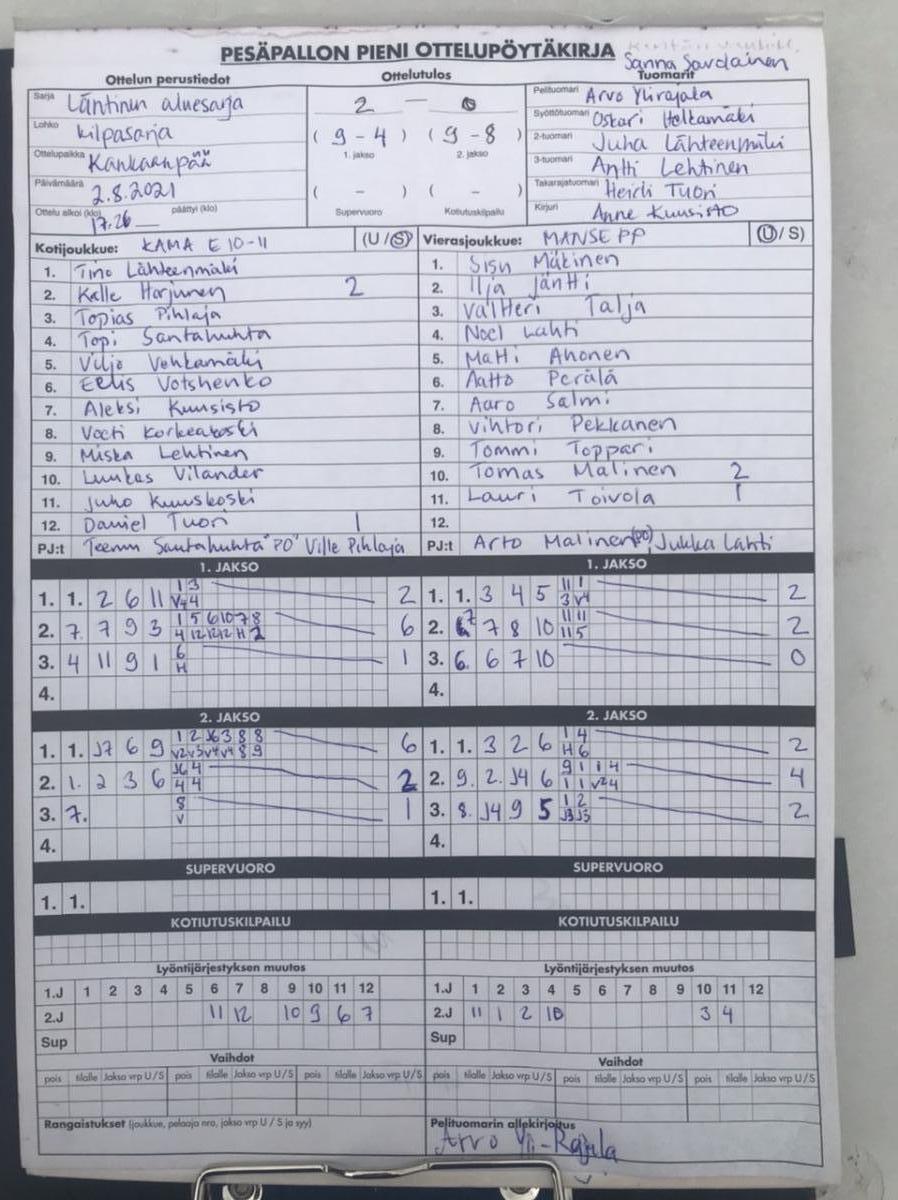 PESÄPALLON PIENI OTTELUPÖYTÄKIRJA
Sanna Savolainen
Ottelun perustiedot Ottelutulos Tuomarit
Sarja Läntinen aluesarja
Lohko kilpasarja
Ottelupaikka Kankaanpää
Päivämäärä 2.8.2021
Ottelu alkoi (klo) 17.26 päättyi (klo)
2 — 0
( 9 - 4 ) ( 9 - 8 )
1. jakso 2. jakso
( - ) ( - )
Supervuoro Kotiutuskilpailu
Pelituomari Arvo Ylirajala
Syöttötuomari Oskari Holkamäki
2-tuomari Juha Lähteenmäki
3-tuomari Antti Lehtinen
Takarajatuomari Heidi Tuori
Kirjuri Anne Kuusisto
Kotijoukkue: KAMA E 10-11 (U / S)
1. Tino Lähteenmäki
2. Kalle Harjunen 2
3. Topias Pihlaja
4. Topi Santahuhta
5. Viljo Vehkamäki
6. Eelis Votshenko
7. Aleksi Kuusisto
8. Veeti Korkeakoski
9. Miska Lehtinen
10. Luukas Vilander
11. Juho Kuuskoski
12. Daniel Tuori 1
PJ:t Teemu Santahuhta "PO" Ville Pihlaja
Vierasjoukkue: MANSE PP (U / S)
1. Sisu Mäkinen
2. Ilja Jäntti
3. Valtteri Talja
4. Noel Lahti
5. Matti Ahonen
6. Aatto Perälä
7. Aaro Salmi
8. Vihtori Pekkanen
9. Tommi Toppari
10. Tomas Malinen 2
11. Lauri Toivola 1
12.
PJ:t Arto Malinen (PO), Jukka Lahti
1. JAKSO
1. 1. 2 6 11 1 3 2
V4 4
2. 7. 7 9 3 1 5 6 10 7 8 6
4 12 12 12 H 2
3. 4 11 9 1 6 1
H
4.
1. JAKSO
1. 1. 3 4 5 11 1 2
3 V4
2. 7 8 10 11 11 2
11 5
3. 6. 6 7 10 0
4.
2. JAKSO
1. 1. J7 6 9 1 2 J6 3 8 8 6
V2 V3 V4 V4 8 9
2. 1. 2 3 6 J6 4 2
4 4
3. 7. 8 1
V
4.
2. JAKSO
1. 1. 3 2 6 1 4 2
H 6
2. 9. 2. J4 6 9 1 1 4 4
1 1 V2 4
3. 8. J4 9 5 1 2 2
J3 J5
4.
SUPERVUORO SUPERVUORO
1. 1. 1. 1.
KOTIUTUSKILPAILU KOTIUTUSKILPAILU
Lyöntijärjestyksen muutos
1.J 1 2 3 4 5 6 7 8 9 10 11 12
2.J 11 12 10 9 6 7
Sup
Lyöntijärjestyksen muutos
1.J 1 2 3 4 5 6 7 8 9 10 11 12
2.J 11 1 2 10 3 4
Sup
Vaihdot Vaihdot
pois tilalle Jakso vrp U/S pois tilalle Jakso vrp U/S pois tilalle Jakso vrp U/S
pois tilalle Jakso vrp U/S pois tilalle Jakso vrp U/S pois tilalle Jakso vrp U/S
Rangaistukset (joukkue, pelaaja nro, jakso vrp U / S ja syy)
Pelituomarin allekirjoitus
Arvo Yli-Rajala